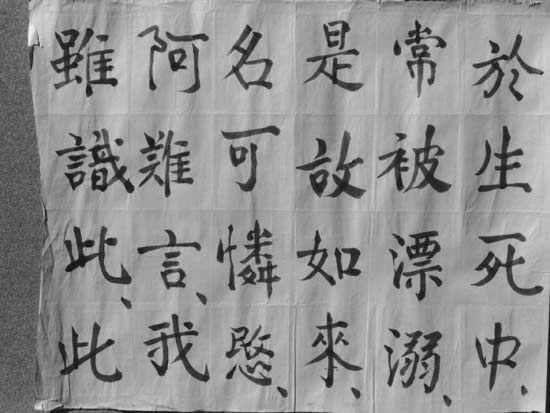 於生死中、
常被漂溺、
是故如來、
名可憐愍、
阿難言、我
雖識此、此